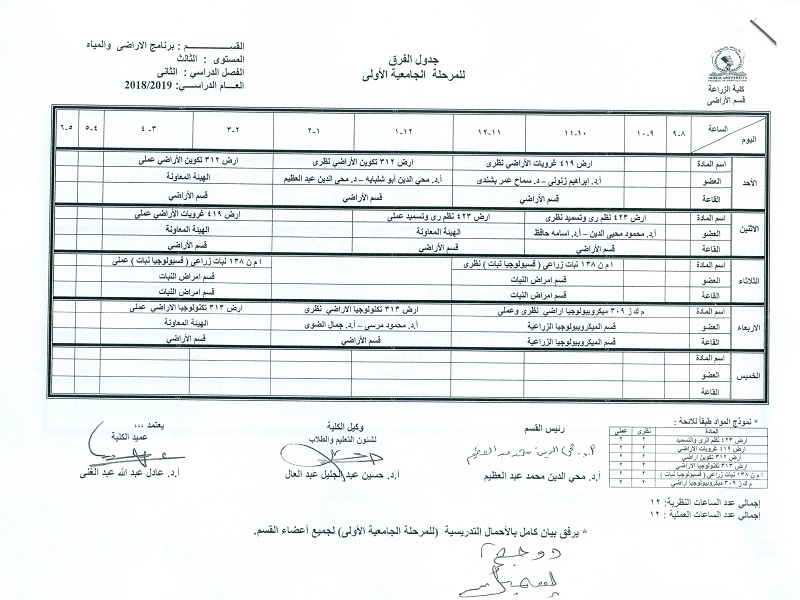 القســـــــــم : برنامج الاراضى والمياه
المستوى : الثالث
الفصل الدراسي : الثانى
العـــام الدراســـي: 2018/2019
جدول الفرق
للمرحلة الجامعية الأولى
MINIA UNIVERSITY
كلية الزراعة
قسم الأراضى
الساعة
اليوم
٨-٩ ٩-١٠ ١٠-١١ ١١-١٢ ١٢-١ ١-٢ ٢-٣ ٣-٤ ٤-٥ ٥-٦
الأحد
اسم المادة ارض ٤١٩ غرويات الأراضي نظرى ارض ٣١٢ تكوين الأراضي نظرى ارض ٣١٢ تكوين الأراضي عملى
العضو أ.د. ابراهيم زنونى – د. سماح عمر بشندى أ.د. محي الدين أبو شلبايه – د. محى الدين عبد العظيم الهيئة المعاونة
القاعة قسم الأراضي قسم الأراضي قسم الأراضي
الاثنين
اسم المادة ارض ٤٢٣ نظم رى وتسميد نظرى ارض ٤٢٣ نظم رى وتسميد عملى ارض ٤١٩ غرويات الأراضي عملى
العضو أ.د. محمود محيى الدين – أ.د. اسامه حافظ الهيئة المعاونة الهيئة المعاونة
القاعة قسم الأراضي قسم الأراضي قسم الأراضي
الثلاثاء
اسم المادة ا م ن ١٣٨ نبات زراعي ( فسيولوجيا نبات ) نظرى ا م ن ١٣٨ نبات زراعي ( فسيولوجيا نبات ) عملى
العضو قسم امراض النبات قسم امراض النبات
القاعة قسم امراض النبات قسم امراض النبات
الاربعاء
اسم المادة م ك ز ٣٠٩ ميكروبيولوجيا اراضي نظرى وعملى ارض ٣١٣ تكنولوجيا الاراضي نظرى ارض ٣١٣ تكنولوجيا الاراضي عملى
العضو قسم الميكروبيولوجيا الزراعية أ.د. محمود مرسى – أ.د. جمال الضوى الهيئة المعاونة
القاعة قسم الميكروبيولوجيا الزراعية قسم الأراضي قسم الأراضي
الخميس
اسم المادة
العضو
القاعة
* نموذج المواد طبقاً للائحة :
المادة نظرى عملى
ارض ٤٢٣ نظم الرى والتسميد ٢ ٢
ارض ٤١٩ غرويات الاراضي ٢ ٢
ارض ٣١٢ تكوين اراضي ٢ ٢
ارض ٣١٣ تكنولوجيا الاراضي ٢ ٢
ا م ن ١٣٨ نبات زراعي ( فسيولوجيا نبات ) ٢ ٢
م ك ز ٣٠٩ ميكروبيولوجيا اراضي ٢ ٢
إجمالي عدد الساعات النظرية: ١٢
إجمالي عدد الساعات العملية : ١٢
رئيس القسم
أ.د. محي الدين محمد عبد العظيم
أ.د. محي الدين محمد عبد العظيم
وكيل الكلية
لشئون التعليم والطلاب
أ.د. حسين عبد الجليل عبد العال
يعتمد ،،،
عميد الكلية
أ.د. عادل عبد الله عبد الغنى
* يرفق بيان كامل بالأحمال التدريسية (للمرحلة الجامعية الأولى) لجميع أعضاء القسم.